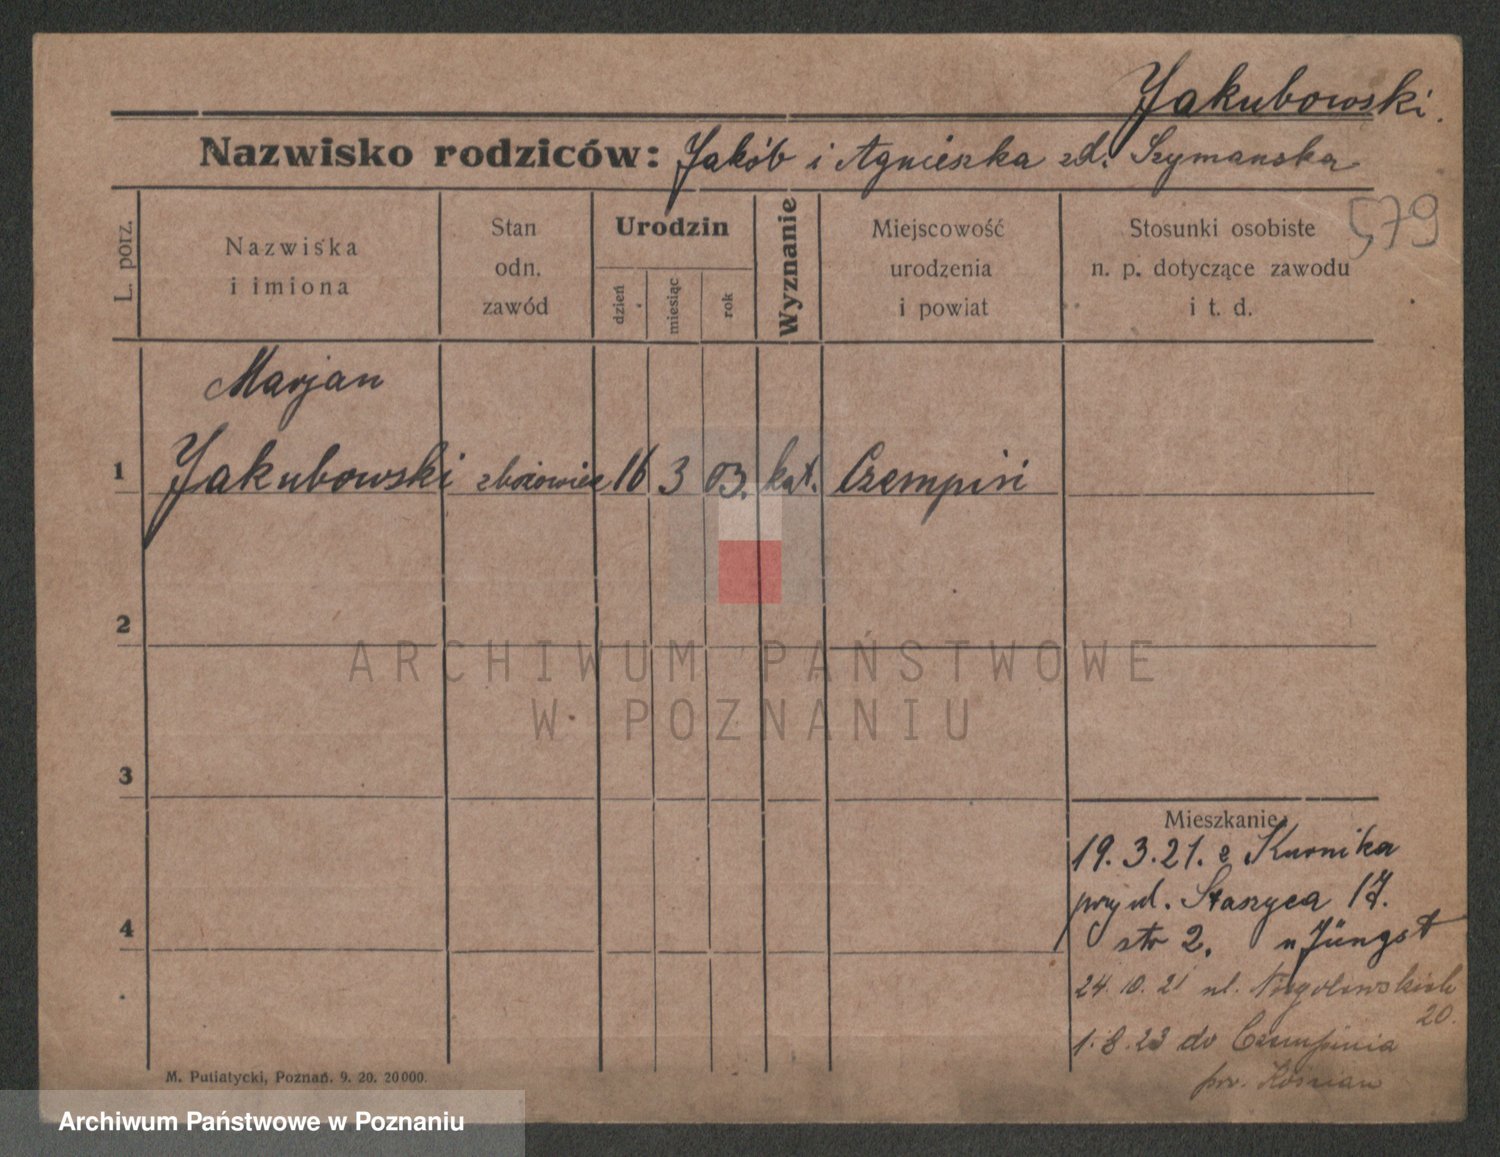 Jakubowski.
Nazwisko rodziców: Jakób i Agnieszka zd. Szymanska
579
L. porz.
Nazwiska
i imiona
Stan
odn.
zawód
Urodzin
dzień
miesiąc
rok
Wyznanie
Miejscowość
urodzenia
i powiat
Stosunki osobiste
n. p. dotyczące zawodu
i t. d.
Marjan
1 Jakubowski zbożowiec 16 3 03. kat. Czempiń
2
ARCHIWUM PAŃSTWOWE
W POZNANIU
3
Mieszkanie
19.3.21. z Kurnika
przy ul. Staszyca 17.
4
str 2. u Jüngst
24.10.21 ul.
20.
1.8.23 do Czempinia
pow. Kościan
M. Putiatycki, Poznań. 9. 20. 20000.
Archiwum Państwowe w Poznaniu